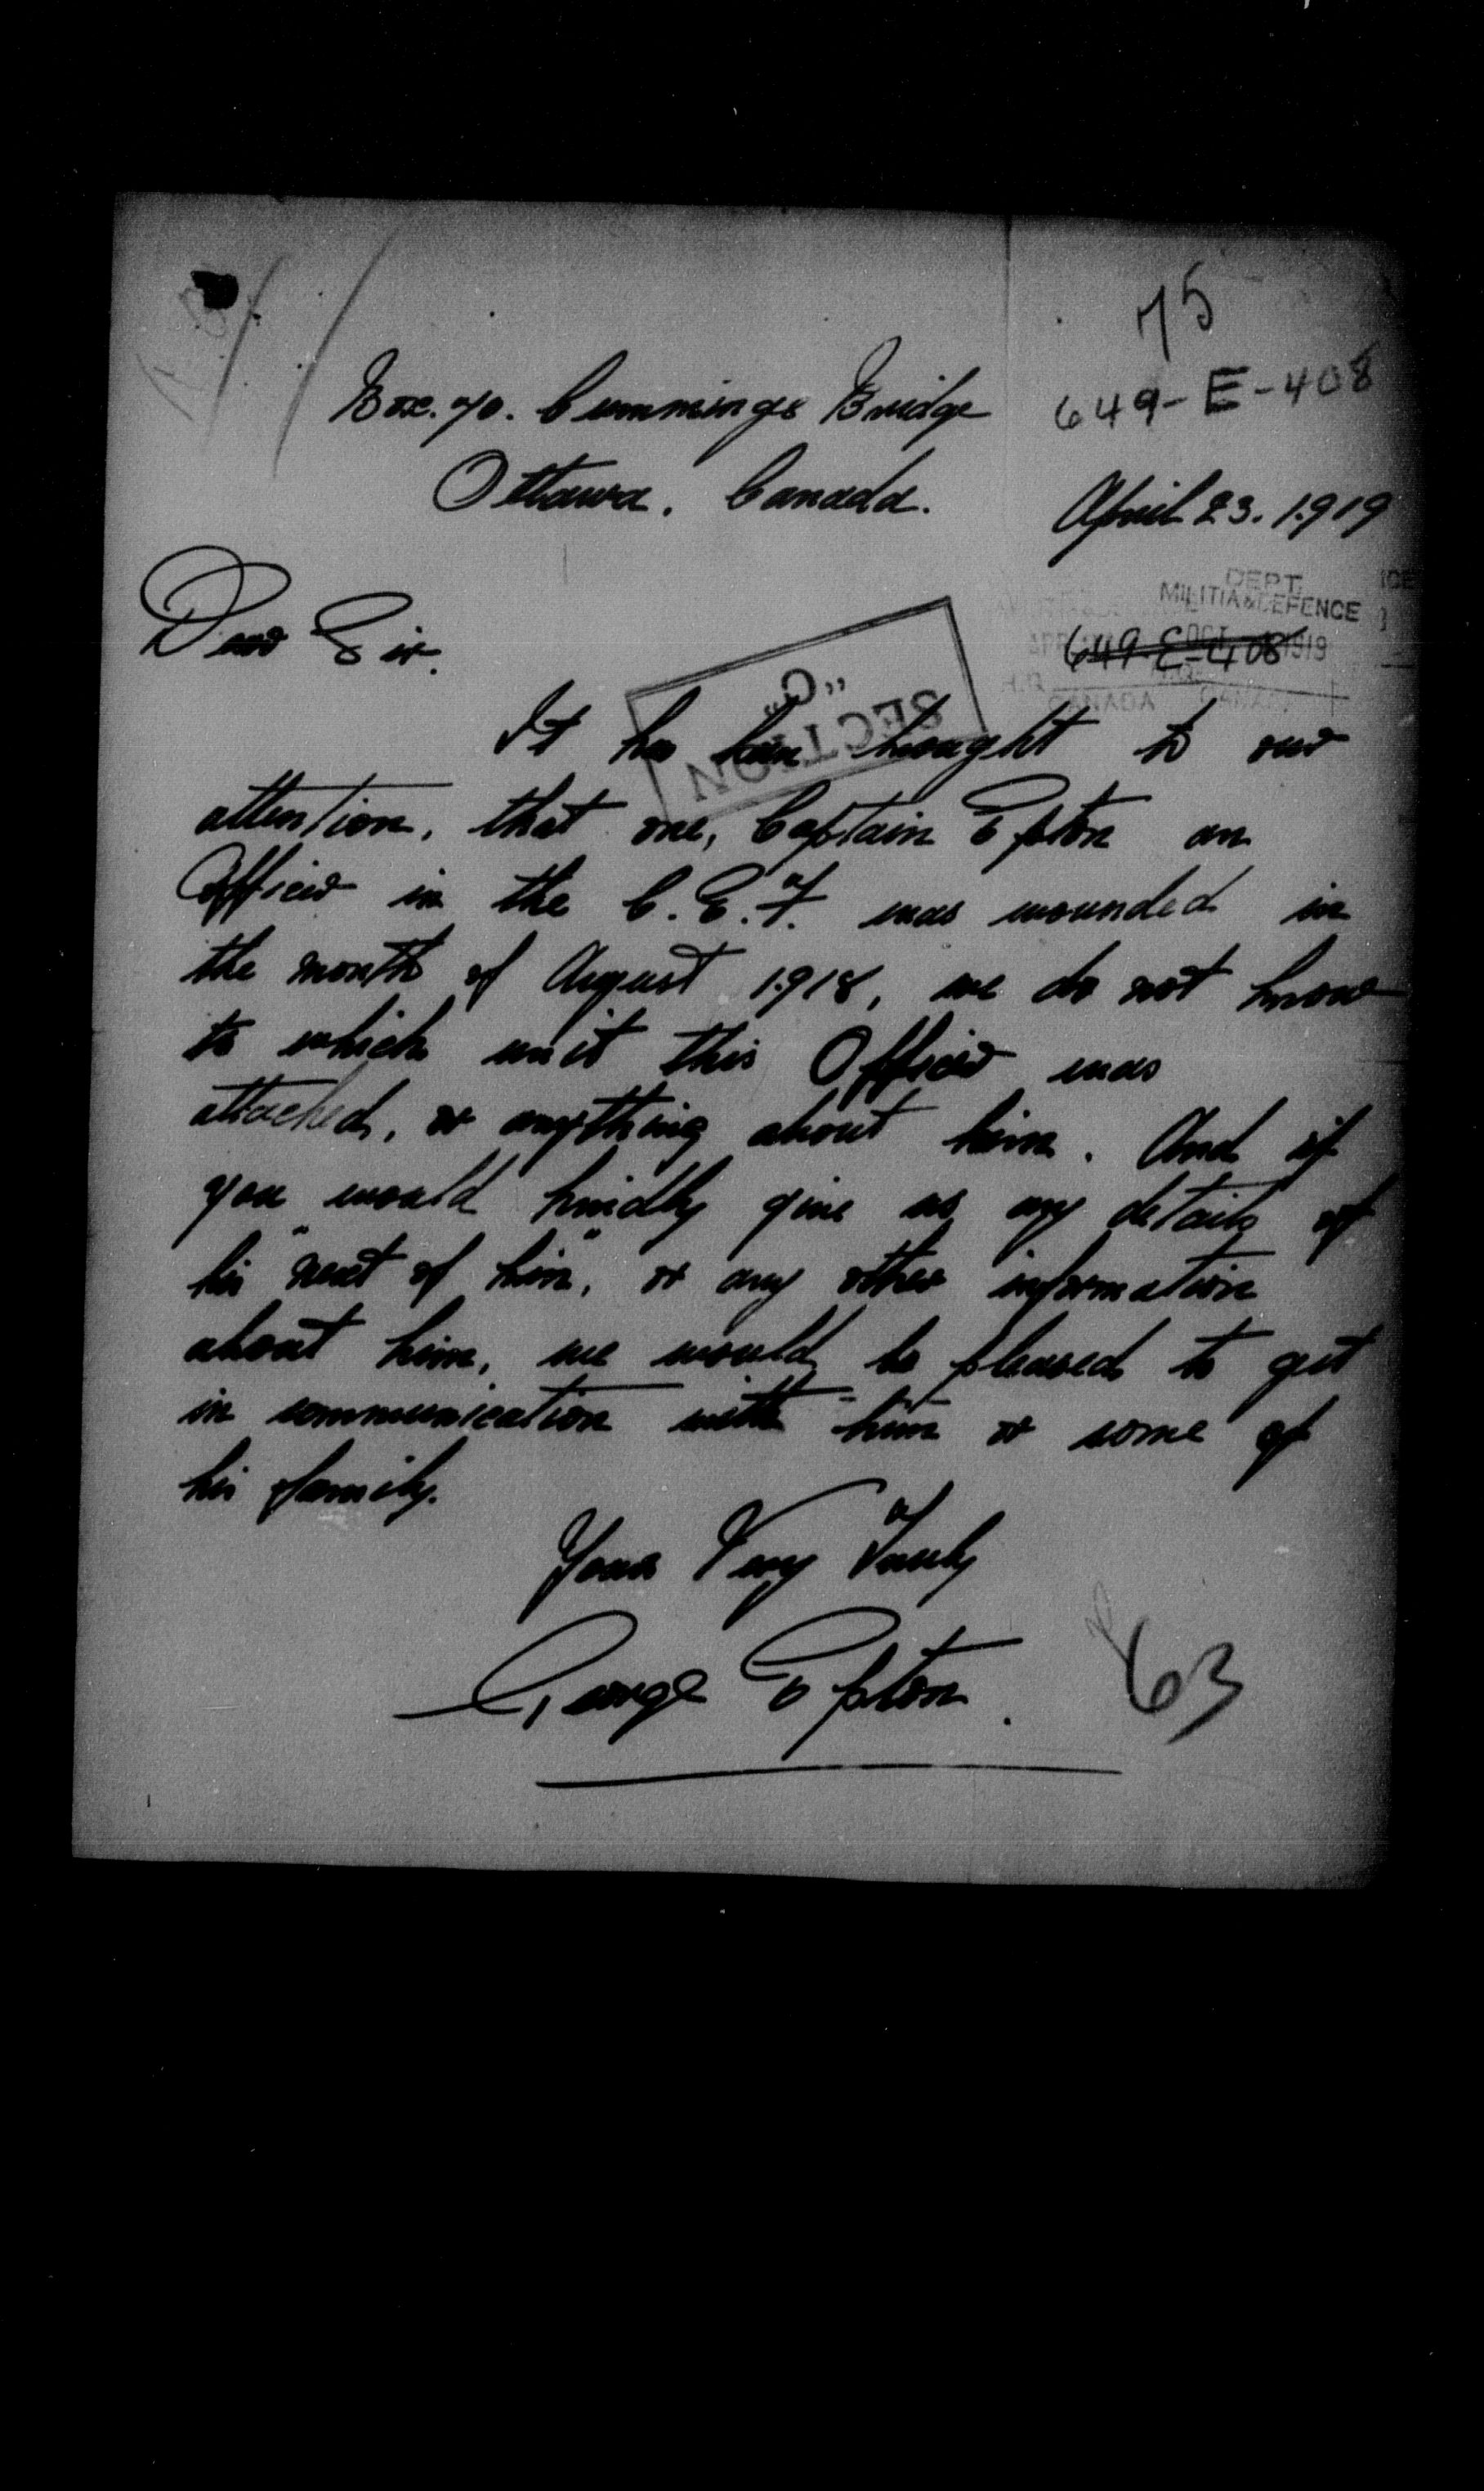 75
Box. 70. Cummings Bridge
649-E-408
Ottawa, Canada.
April 23. 1919
DEPT.
MILITIA & DEFENCE
Dear Sir.
649-E-408
OCT 1919
CANADA
"C"
SECTION
It has been brought to our
attention, that one, Captain Epton an
Officer in the C.E.F. was wounded in
the month of August 1918, we do not know
to which unit this Officer was
attached, or anything about him. And if
you would kindly give us any details of
his "next of kin", or any other information
about him, we would be pleased to get
in communication with him or some of
his family.
Yours Very Truly
George Epton.
63